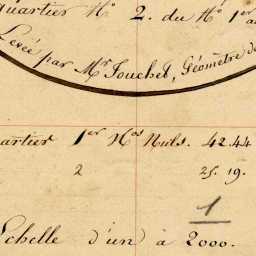 quartier N.o 2. du N.o 1er au
Levée par Mr Jouchet, Géomètre de
artier 1er Nos Nuls. 42. 44
2 25. 19.
1
Echelle d'un à 2000.